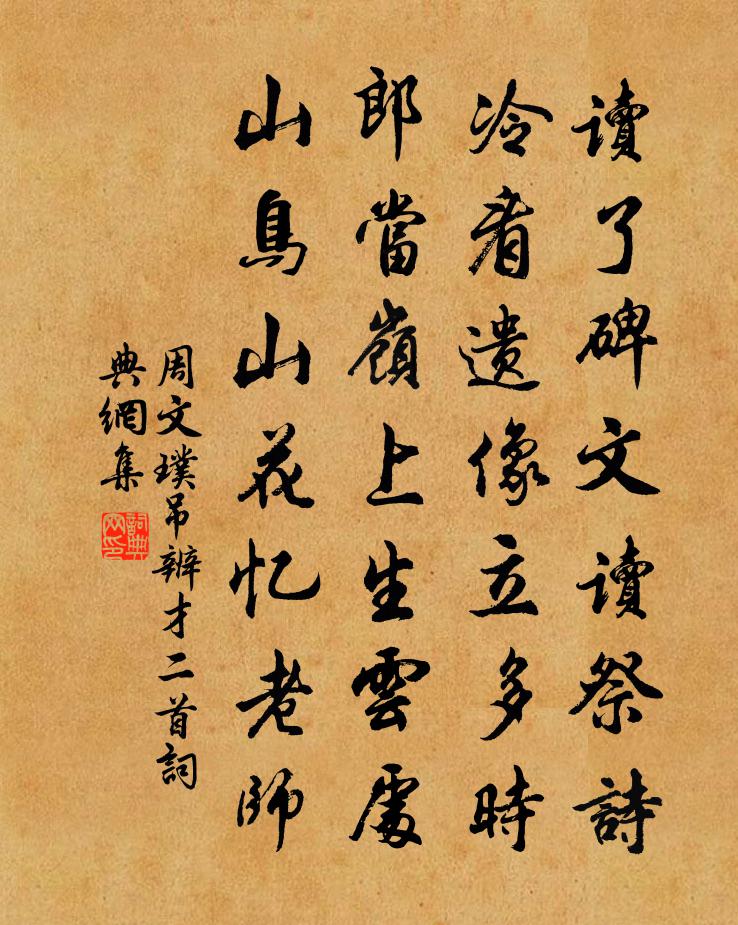 讀了碑文讀祭詩
冷看遺像立多時
郎當嶺上生雲處
山鳥山花忆老師
周文璞吊辨才二首詞
典網集
詞典
网印